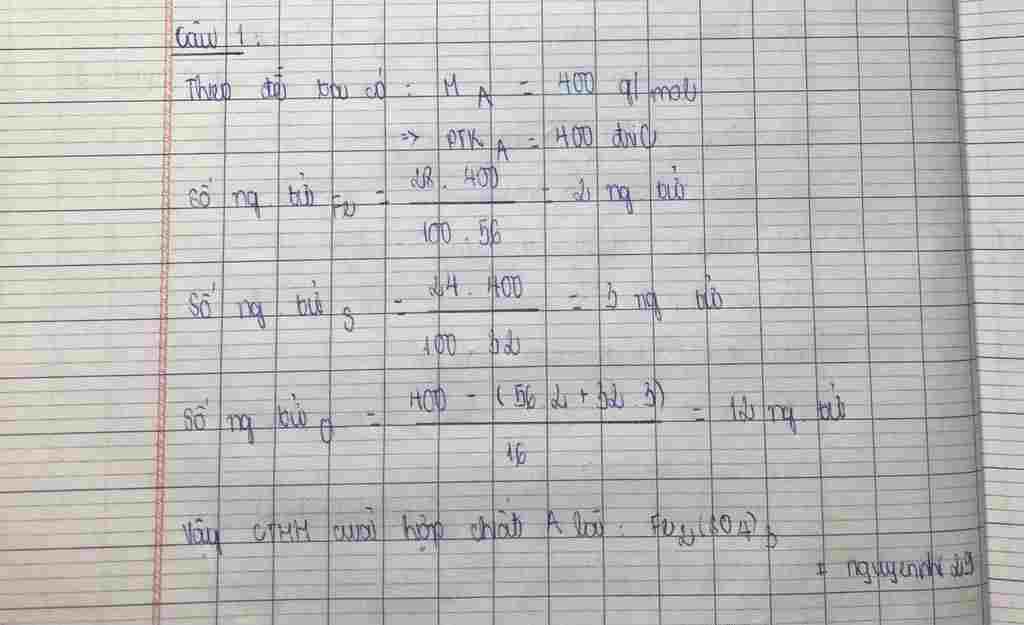 Câu 1:
Theo đề ta có: M A = 400 g/mol
=> PTK A = 400 đvC
Số ng tử Fe = 28.400 / 100.56 = 2 ng tử
Số ng tử S = 24.400 / 100.32 = 3 ng tử
Số ng tử O = 400 - (56.2 + 32.3) / 16 = 12 ng tử
Vậy CTHH của hợp chất A là: Fe2(SO4)3
# nguyennhi 29